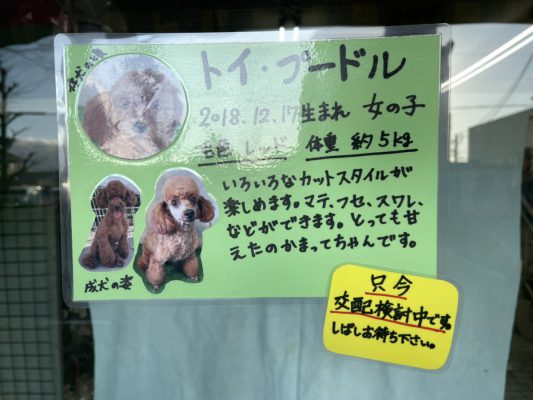 トイ・プードル
2018.12.17生まれ 女の子
毛色 レッド 体重 約5kg
いろいろなカットスタイルが
楽しめます。マテ、フセ、スワレ、
などができます。とっても甘
えたのかまってちゃんです。
成犬の姿
只今
交配検討中です。
しばしお待ち下さい。